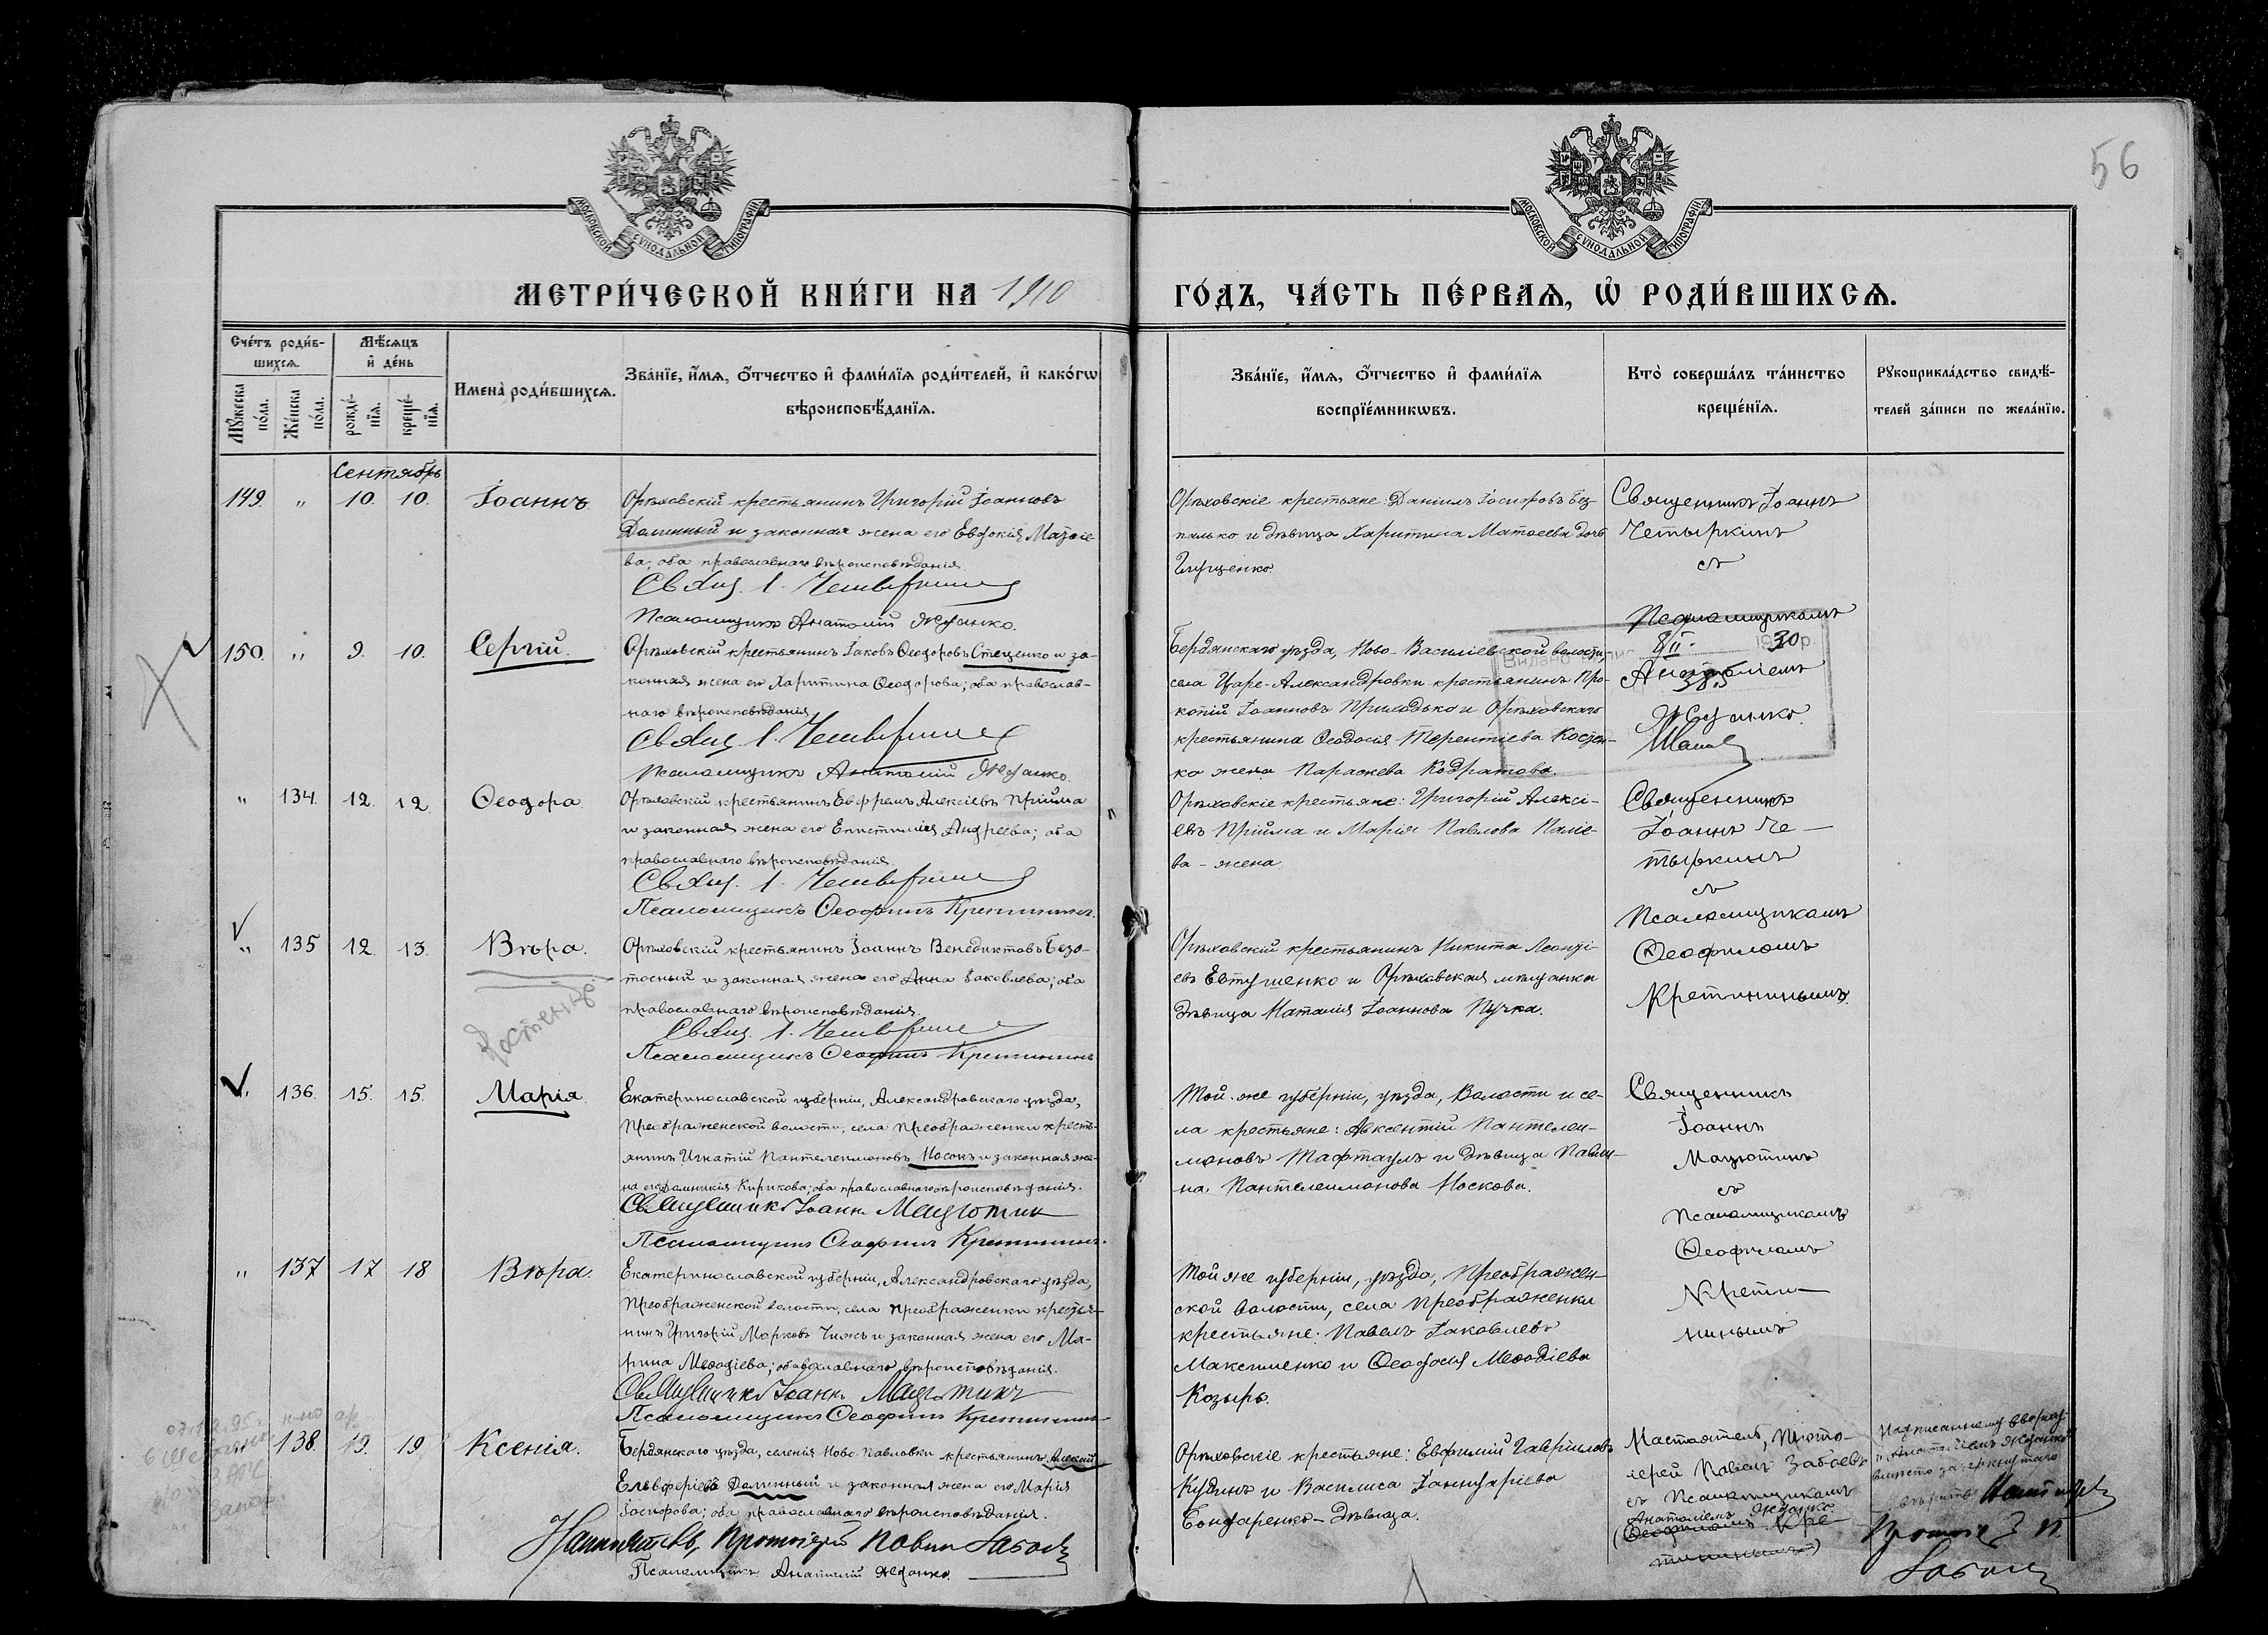 56
МОСКОВСКОЙ СУНОДАЛЬНОЙ ТИПОГРАФІИ
МОСКОВСКОЙ СУНОДАЛЬНОЙ ТИПОГРАФІИ
МЕТРИ́ЧЕСКОЙ КНИ́ГИ НА 1910
ГО́ДЪ, ЧА́СТЬ ПЕ́РВАѦ, Ѡ РОДИ́ВШИХСѦ.
Сче́тъ роди́в-
шихсѧ.
Мꙋжеска по́ла.
Же́нска по́ла.
Мѣ́сѧцъ и де́нь
рожде́-нїѧ.
креще́-нїѧ.
Имена̀ роди́вшихсѧ.
Зва́нїе, и́мѧ, ѻ́тчество и фами́лїѧ роди́телей, и како́гѡ
вѣроисповѣ́данїѧ.
Зва́нїе, и́мѧ, ѻ́тчество и фами́лїѧ
воспрїе́мникѡвъ.
Кто̀ соверша́лъ та́инство
креще́нїѧ.
Рꙋкоприкла́дство свидѣ́-
телей за́писи по жела́нїю.
Сентябрь
149. " 10. 10. Іоаннъ.
Орѣховскій крестьянинъ Григорій Іоанновъ
Долинный и законная жена его Евдокія Матѳіе-
ва; оба православнаго вѣроисповѣданія.
Псаломщикъ Анатолій Жданко.
Орѣховскіе крестьяне: Даніилъ Іосифовъ Без-
палько и дѣвица Харитина Матѳеева дочь
Глущенко.
Священникъ Іоаннъ
Четыркинъ
съ
Псаломщикомъ
Анатоліемъ
Жданко.
Видано
8/II. 30
385
150. " 9. 10. Сергій.
Орѣховскій крестьянинъ Іаковъ Ѳеодоровъ Стеценко и за-
конная жена его Харитина Ѳеодорова; оба православ-
наго вѣроисповѣданія
Псаломщикъ Анатолій Жданко.
Бердянскаго уѣзда, Ново-Василіевской волости,
села Царе-Александровки крестьянинъ Про-
копій Іоанновъ Приходько и Орѣховскаго
крестьянина Ѳеодосія Терентіева Костен-
ко жена Параскева Кодратова.
" 134. 12. 12. Ѳеодора.
Орѣховскій крестьянинъ Евфремъ Алексіевъ Прійма
и законная жена его Епистимія Андреева; оба
православнаго вѣроисповѣданія.
Псаломщикъ Ѳеофилъ Кретининъ.
Орѣховскіе крестьяне: Григорій Алексі-
евъ Прійма и Марія Павлова Паліе-
ва - жена
Священникъ
Іоаннъ Че-
тыркинъ
съ
Псаломщикомъ
Ѳеофиломъ
Кретининымъ.
" 135 12. 13. Вѣра.
Орѣховскій крестьянинъ Іоаннъ Венедиктовъ Безо-
тосный и законная жена его Анна Іаковлева; оба
православнаго вѣроисповѣданія.
Псаломщикъ Ѳеофилъ Кретининъ
Орѣховскій крестьянинъ Никита Леонті-
евъ Евтушенко и Орѣховская мѣщанка
дѣвица Наталія Іоаннова Пучка.
136. 15. 15. Марія.
Екатеринославской губерніи, Александровскаго уѣзда,
Преображенской волости, села Преображенки кресть-
янинъ Игнатій Пантелеимоновъ Носокъ и законная же-
на его Домникія Кирикова; оба православнаго вѣроисповѣданія.
Священникъ Іоаннъ Мацютин
Псаломщикъ Ѳеофилъ Кретининъ.
Той-же губерніи, уѣзда, Волости и се-
ла крестьяне: Авксентій Пантелеи-
моновъ Тафтаулъ и дѣвица Павли-
на Пантелеимонова Носкова.
Священникъ
Іоаннъ
Мацютинъ
съ
Псаломщикомъ
Ѳеофиломъ
Крети-
нинымъ
" 137 17 18 Вѣра.
Екатеринославской губерніи, Александровскаго уѣзда,
Преображенской волости, села Преображенки крестья-
нинъ Григорій Марковъ Чижъ и законная жена его Ма-
рина Меѳодіева; оба православнаго вѣроисповѣданія.
Священникъ Іоаннъ Мацютинъ
Псаломщикъ Ѳеофилъ Кретининъ
Той же губерніи, уѣзда, Преображен-
ской волости, села Преображенки
крестьяне: Павелъ Іаковлевъ
Максименко и Ѳеодосія Меѳодіева
Козырь.
" 138. 19. 19 Ксенія.
Бердянскаго уѣзда, селенія Ново-Павловки крестьянинъ Алексій
Ельвферіевъ Долинный и законная жена его Марія
Іосифова; оба православнаго вѣроисповѣданія.
Настоятель, Протоіерей Павелъ
Псаломщикъ Анатолій Жданко.
Орѣховскіе крестьяне: Евфимій Гавріиловъ
Кудинъ и Василиса Іаннуаріева
Бондаренко - дѣвица.
Настоятель, Прото-
іерей Павелъ
съ Псаломщикомъ
Анатоліемъ Жданко
(Ѳеофиломъ Кре-
тининымъ)
Надписанному вверху
"Анатоліемъ Жданко"
вмѣсто зачеркнутаго
вѣрить